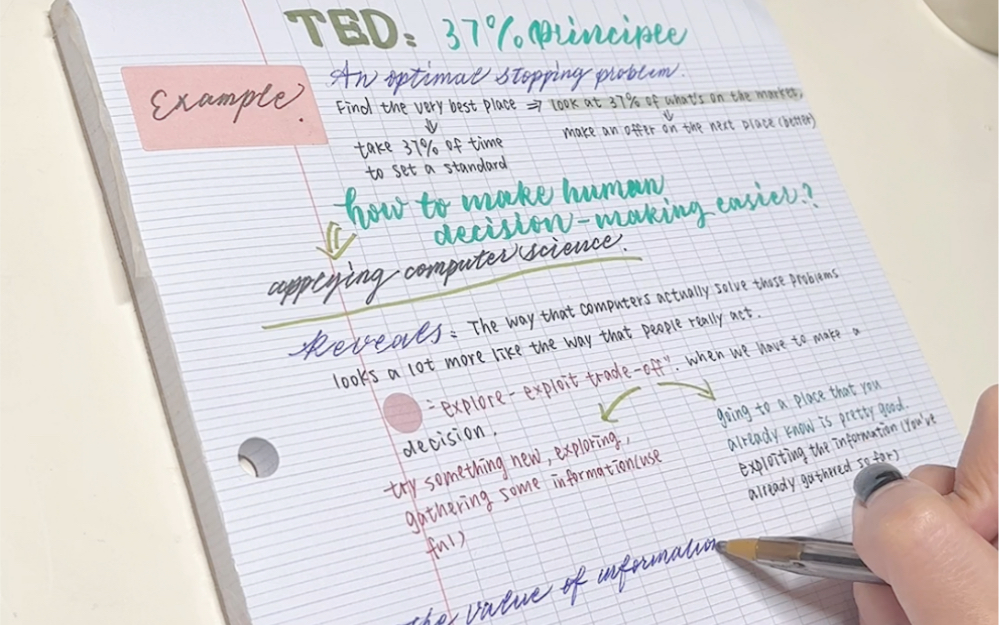 TED: 37% principle
An optimal stopping problem.
Example.
Find the very best place ⇒ look at 37% of what's on the market.
⇓
⇓
take 37% of time
to set a standard
make an offer on the next place (better)
how to make human
decision-making easier?
applying computer science.
Reveals: The way that computers actually solve those problems
looks a lot more like the way that people really act.
= explore-exploit trade-off". when we have to make a
decision.
try something new, exploring,
gathering some information(use
ful)
going to a place that you
already know is pretty good.
exploiting the information (you've
already gathered so far)
the value of information